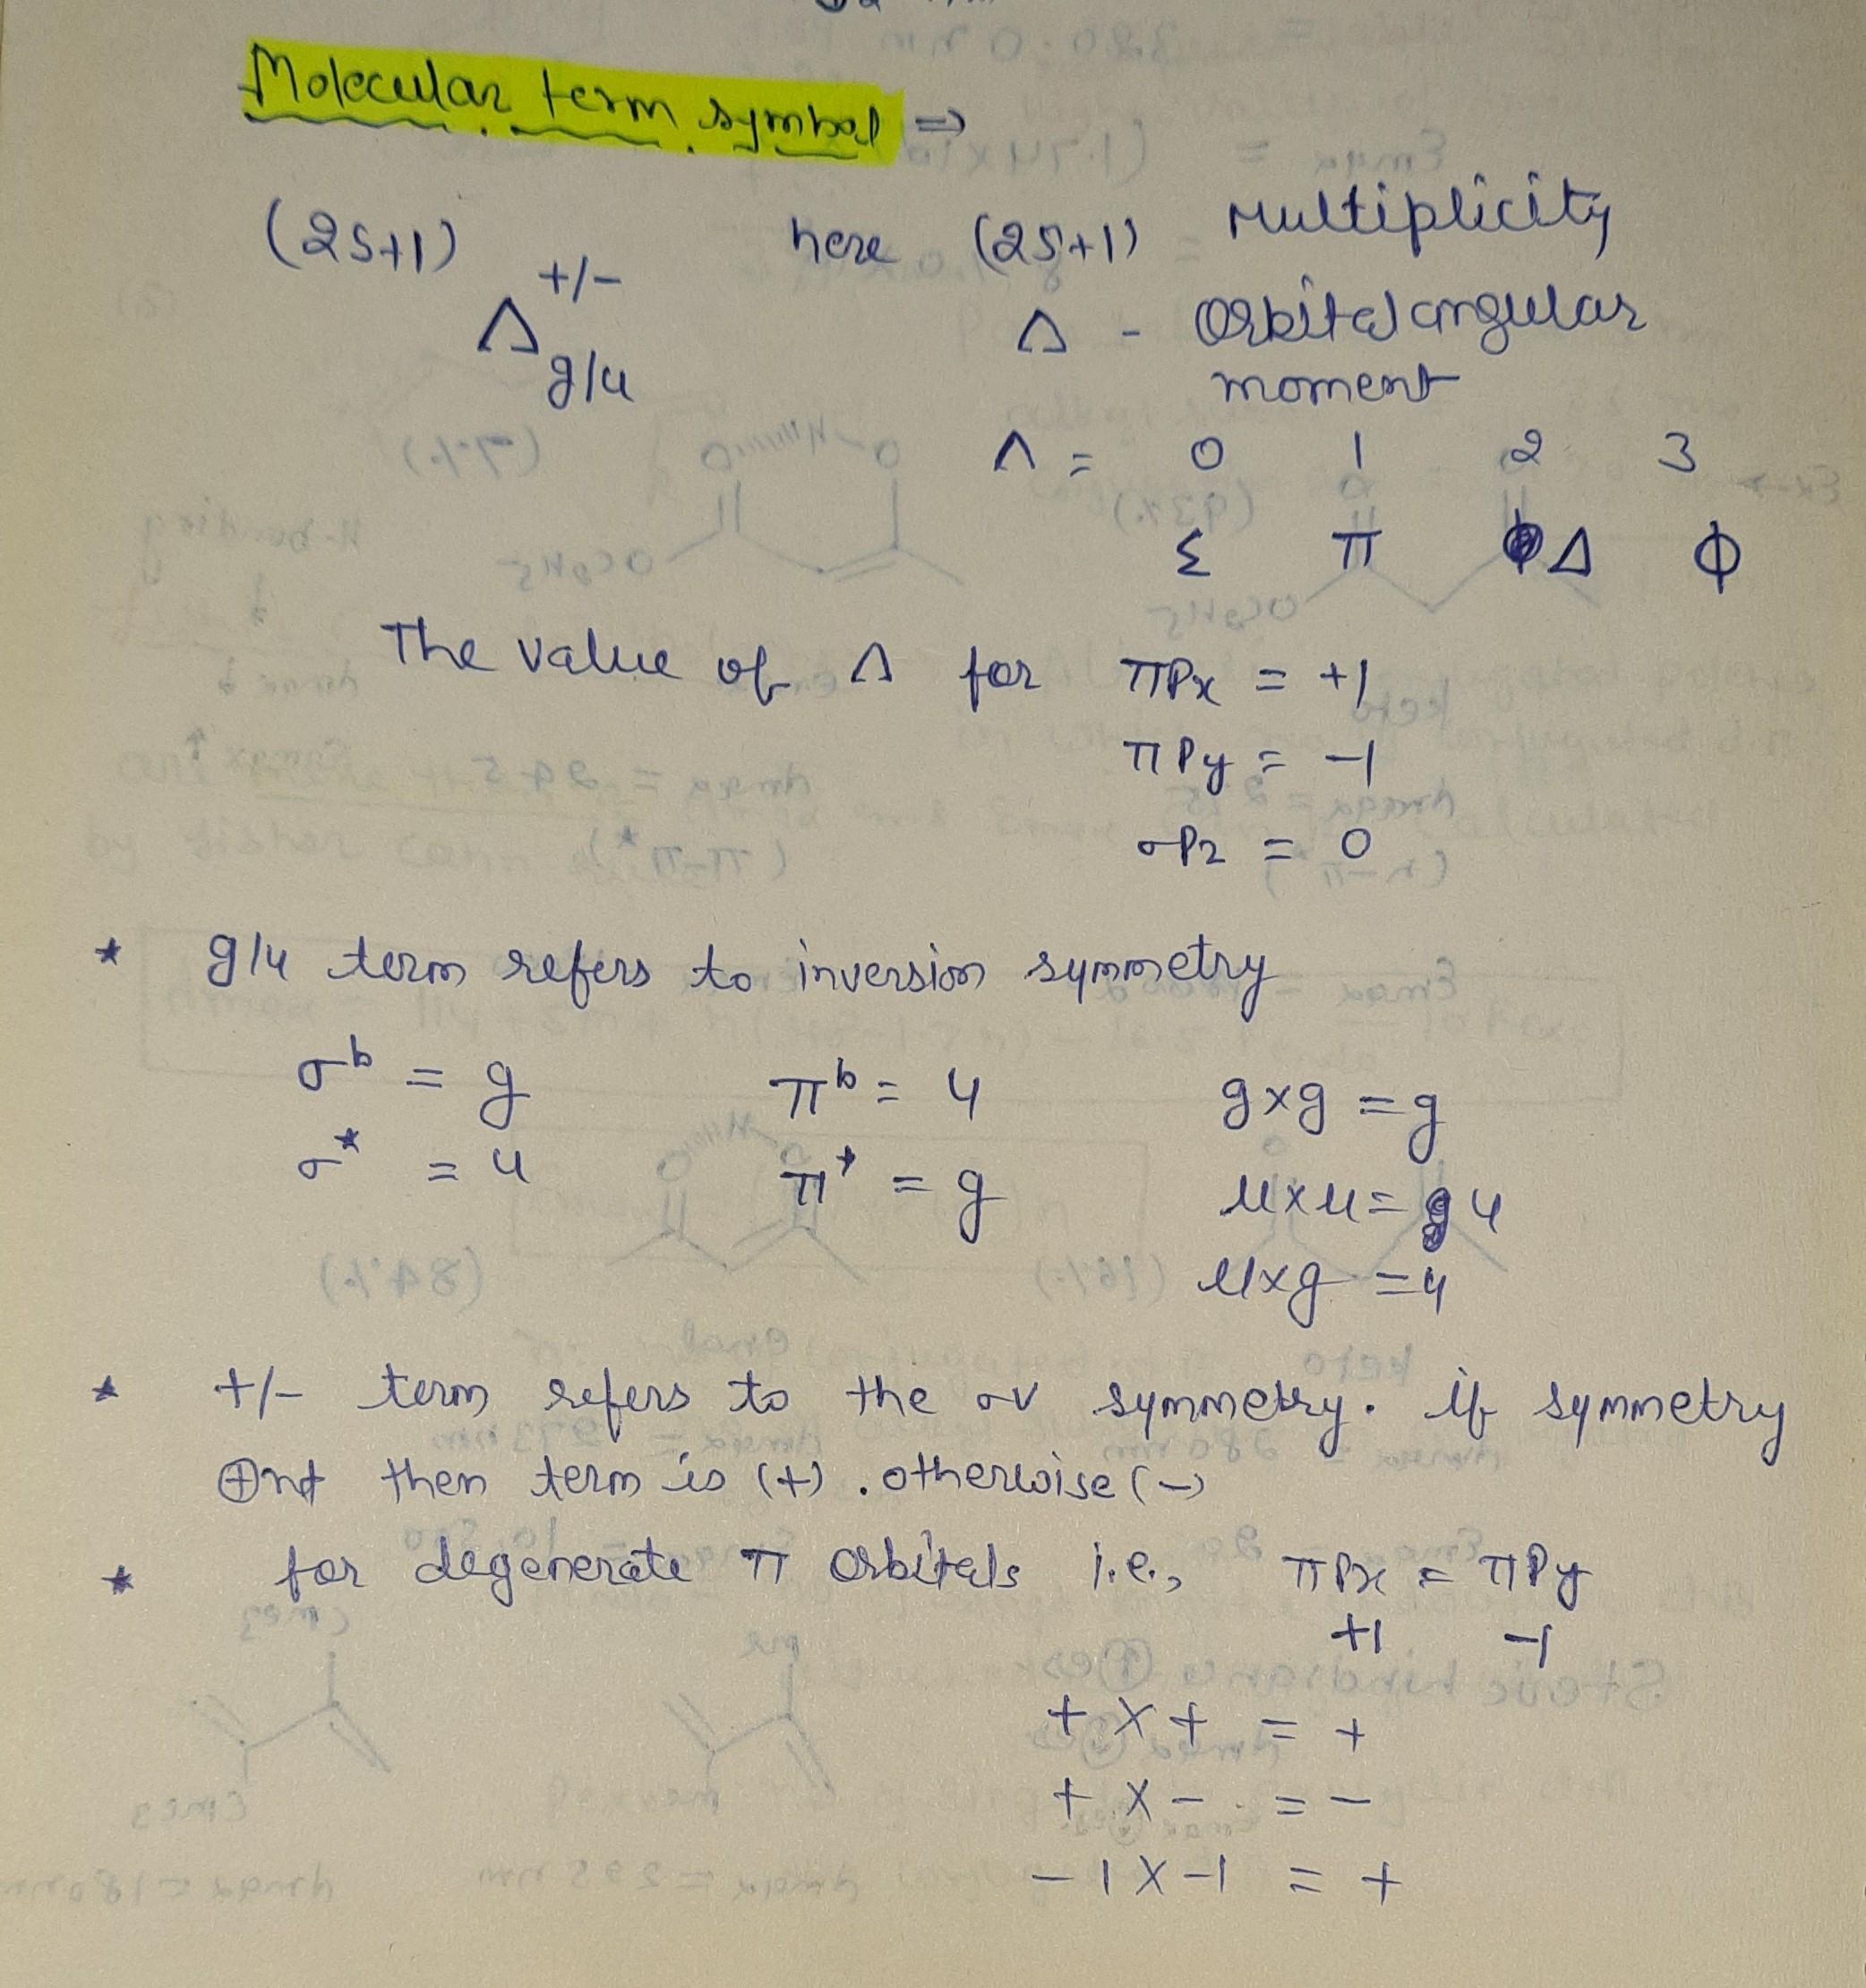 Molecular term symbol ⇒
(2S+1) Λ +/- g/u
here (2S+1) Multiplicity
Λ - Orbital angular
moment
Λ = 0 1 2 3
Σ π Δ Φ
The value of Λ for πPx = +1
πPy = -1
σPz = 0
* g/u term refers to inversion symmetry
σᵇ = g πᵇ = u g×g = g
σ* = u π* = g u×u = u
u×g = u
* +/- term refers to the σv symmetry. if symmetry
then term is (+). otherwise (-)
* for degenerate π orbitals i.e., πPx = πPy
+1 -1
+ × + = +
+ × - = -
-1 × -1 = +